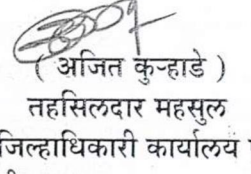 ( अजित कुऱ्हाडे )
तहसिलदार महसुल
जिल्हाधिकारी कार्यालय